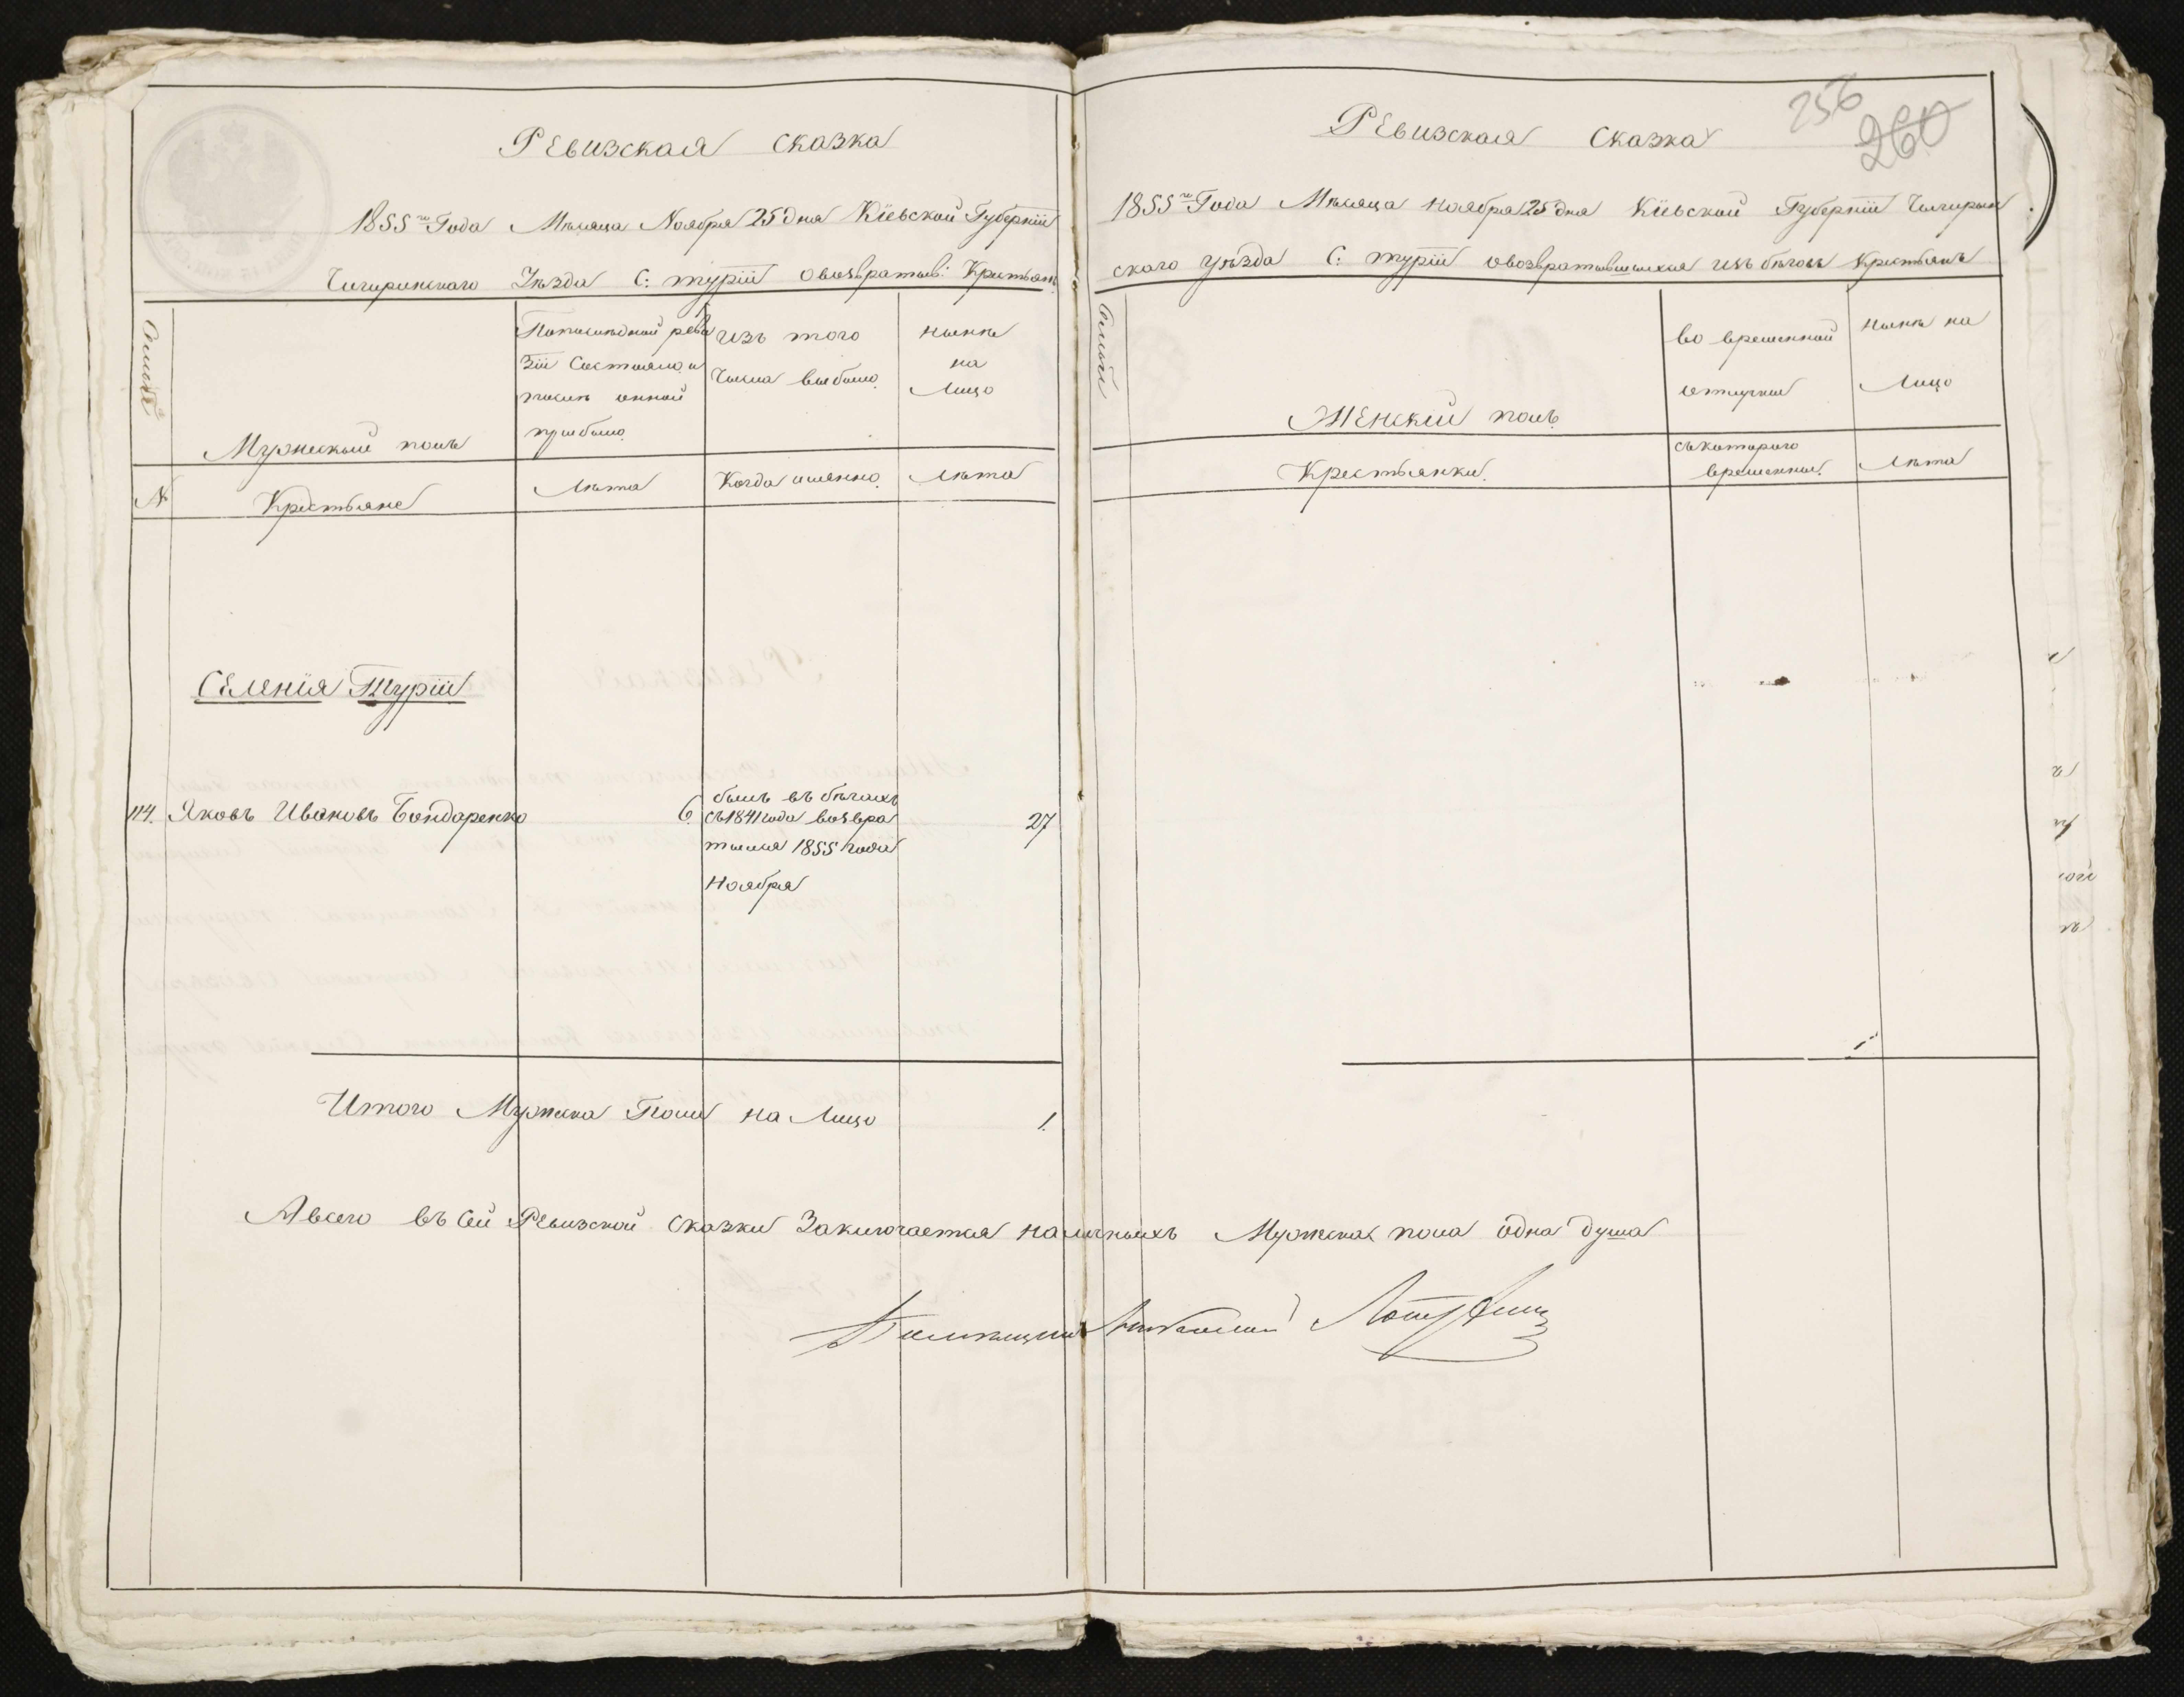 Ревизская сказка
1855го Года Мѣсяца Ноября 25 дня Кіевской Губерніи
Чигиринскаго Уѣзда С: турiи овозвратив: Крестьян
Семьи
Мужеский полъ
По последней реви
зіи Состояло и
послѣ онной
прибыло
изъ того
Числа выбыло
нынѣ
на
Лицо
№
Крестьяне
Лѣта
Когда именно
лѣта
Селенія Турiи
114. Яковъ Ивановъ Бондаренко
6.
былъ въ бѣгахъ
съ 1841 года возвра
тился 1855 года
Ноября
27
Итого Мужеска Пола на Лицо 1.
256
260
Ревизская Сказка
1855го Года Мѣсяца Ноября 25 дня Кіевской Губерніи Чигирин
скаго уѣзда С: турiи овозвратившихся изъ бѣговъ Крестьянъ
Семьи
Женскій полъ
во временной
отлучки
нынѣ на
Лицо
Крестьянки
съ котораго
времени
Лѣта
А всего въ сей Ревизской Сказки Заключается наличныхъ Мужеска пола одна душа